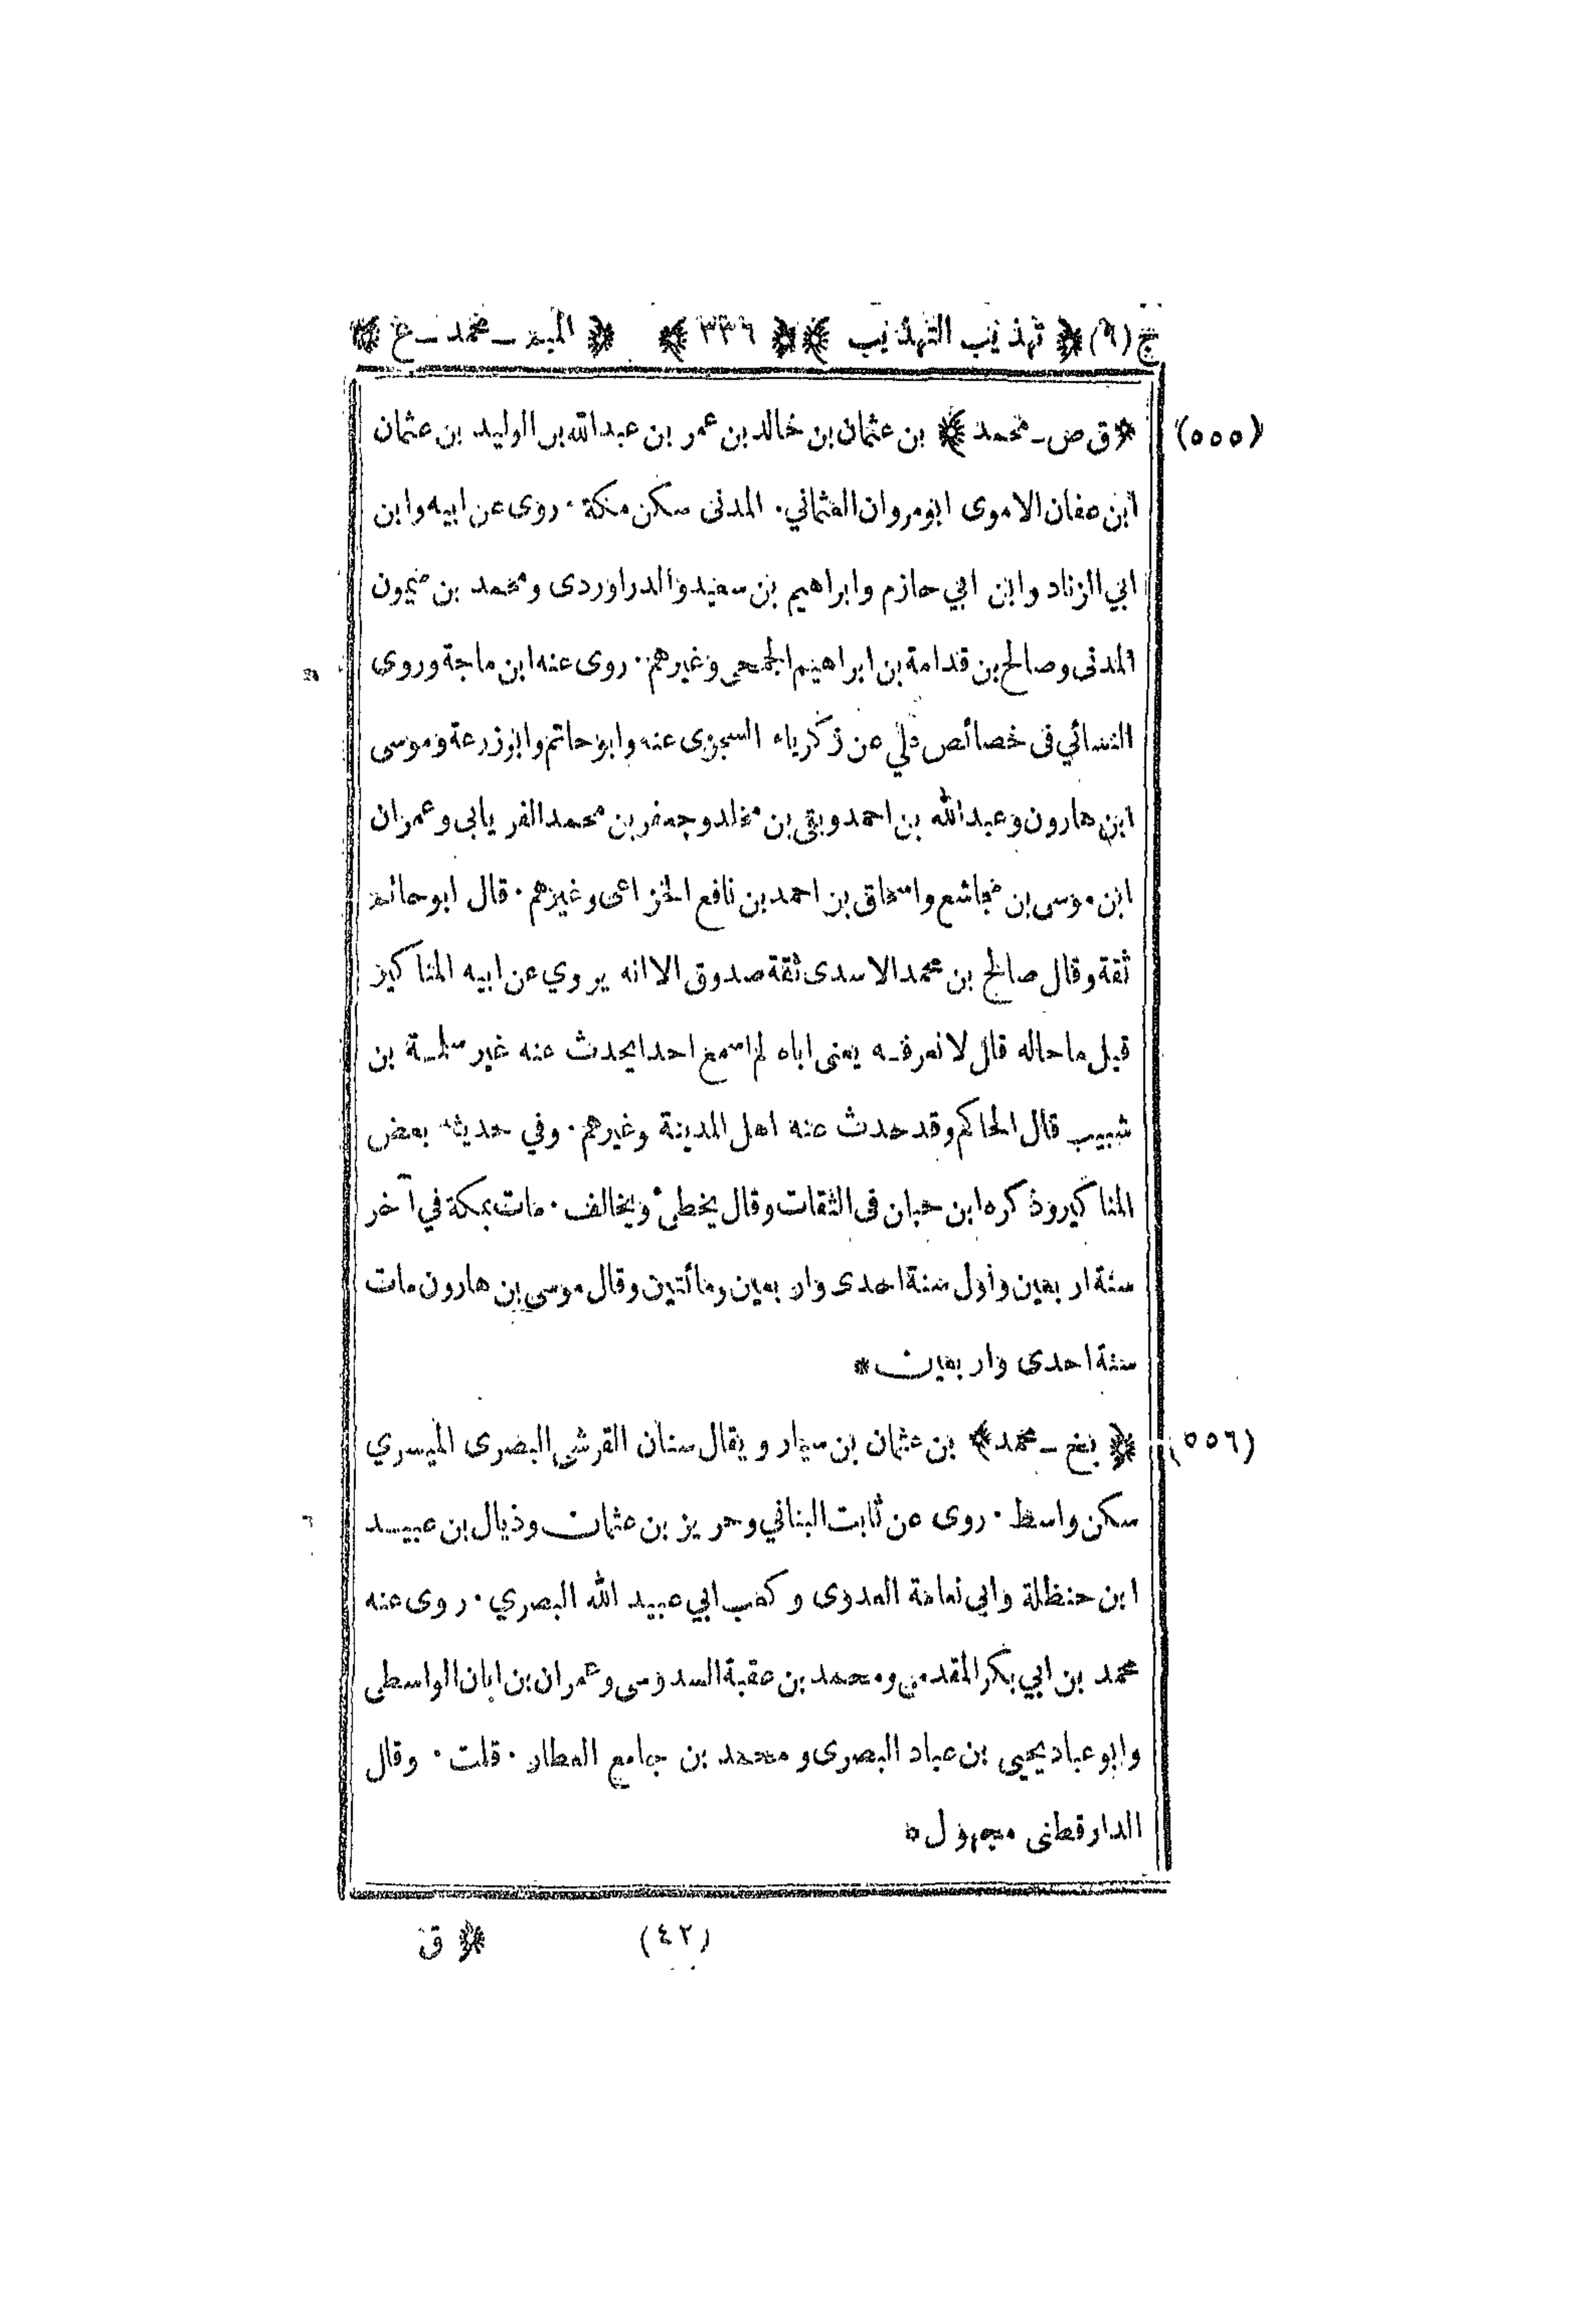 ج(٩) ﴿ تهذيب التهذيب ﴾ ﴿ ٣٣٦ ﴾ ﴿ الميم ـ محمد ـ ع ﴾
(٥٥٥) ﴿ ق ص ـ محمد ﴾ بن عثمان بن خالد بن عمر بن عبدالله بن الوليد بن عثمان
ابن عفان الاموى ابومروان العثماني. المدنى سكن مكة. روى عن ابيه وابن
ابي الزناد وابن ابي حازم وابراهيم بن سعيد والدراوردى ومحمد بن ميمون
المدنى وصالح بن قدامة بن ابراهيم الجمحى وغيرهم. روى عنه ابن ماجة وروى
النسائي فى خصائص علي عن زكرياء السجزى عنه وابو حاتم وابوزرعة وموسى
ابن هارون وعبدالله بن احمد وبقى بن مخلد وجعفر بن محمد الفر يابى وعمران
ابن موسى بن مجاشع واسحاق بن احمد بن نافع الخزاعى وغيرهم. قال ابوحاتم
ثقة وقال صالح بن محمد الاسدى ثقة صدوق الا انه يروي عن ابيه المناكير
قيل ماحاله قال لانعرفـه يعنى اباه لم اسمع احدا يحدث عنه غير سلمـة بن
شبيب قال الحاكم وقد حدث عنه اهل المدينة وغيرهم. وفي حديثه بعض
المناكير وذكره ابن حبان فى الثقات وقال يخطئ ويخالف. مات بمكة في آخر
سنة اربعين واول سنة احدى واربعين ومائتين وقال موسى بن هارون مات
سنة احدى واربعين *
(٥٥٦) ﴿ بخ ـ محمد ﴾ بن عثمان بن سيار ويقال سنان القرشي البصرى الميسري
سكن واسط. روى عن ثابت البناني وحريز بن عثمان وذيال بن عبيـد
ابن حنظلة وابي نعامة العدوى وكعب ابي عبيد الله البصري. روى عنه
محمد بن ابي بكر المقدمي ومحمد بن عقبة السدوسى وعمران بن ابان الواسطى
وابو عباد يحيى بن عباد البصرى ومحمد بن جامع العطار. قلت. وقال
الدارقطنى مجهول *
(٤٢) ﴿ ق